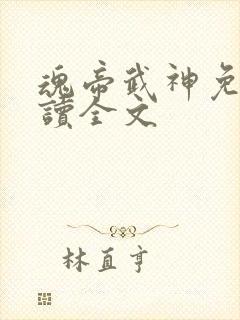 魂帝武神免
讀全文
林直亨